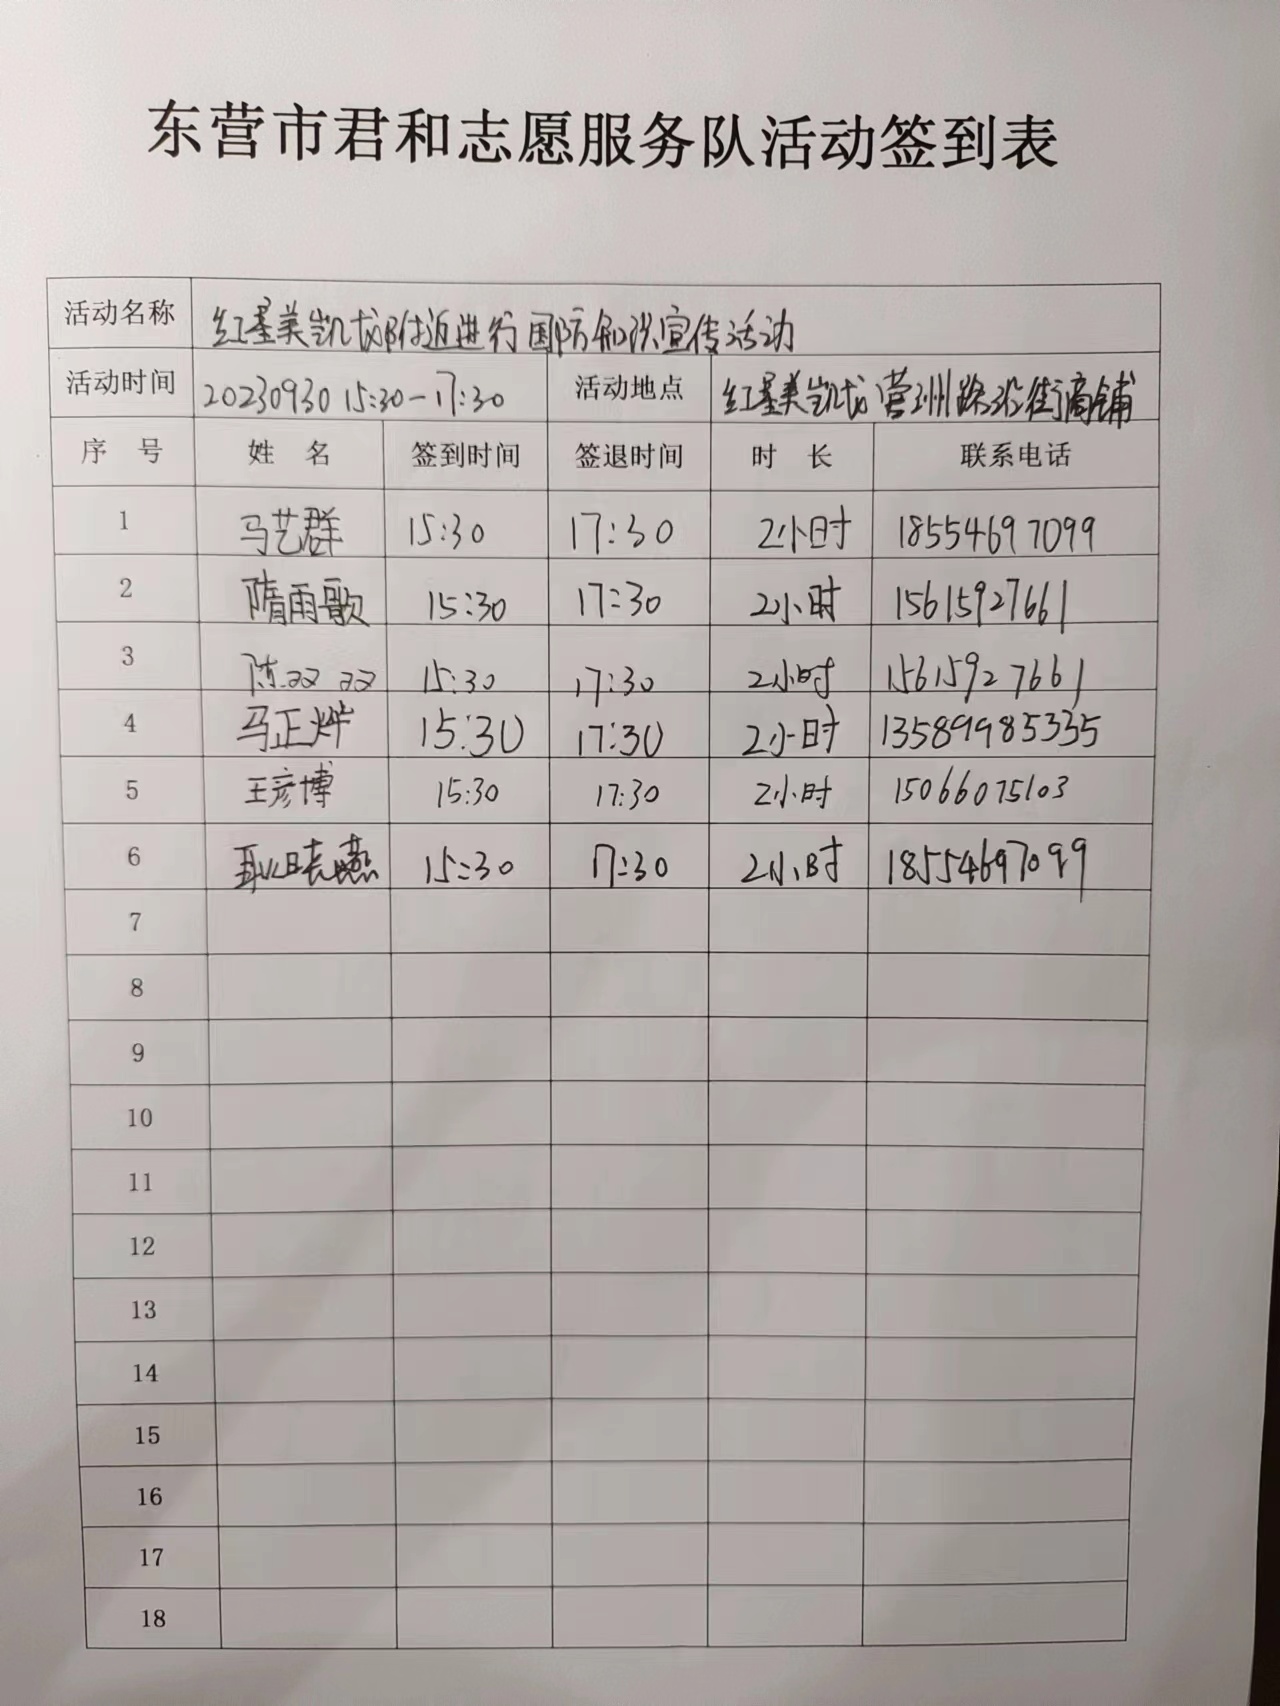 东营市君和志愿服务队活动签到表
活动名称 红星美凯龙附近进行国防知识宣传活动
活动时间 20230930 15:30-17:30 活动地点 红星美凯龙营州路沿街商铺
序 号 姓 名 签到时间 签退时间 时 长 联系电话
1 马艺群 15:30 17:30 2小时 18554697099
2 隋雨歌 15:30 17:30 2小时 15615927661
3 陈双双 15:30 17:30 2小时 15615927661
4 马正烨 15:30 17:30 2小时 13589985335
5 王彦博 15:30 17:30 2小时 15066075103
6 耿 15:30 17:30 2小时 18554697099
7
8
9
10
11
12
13
14
15
16
17
18